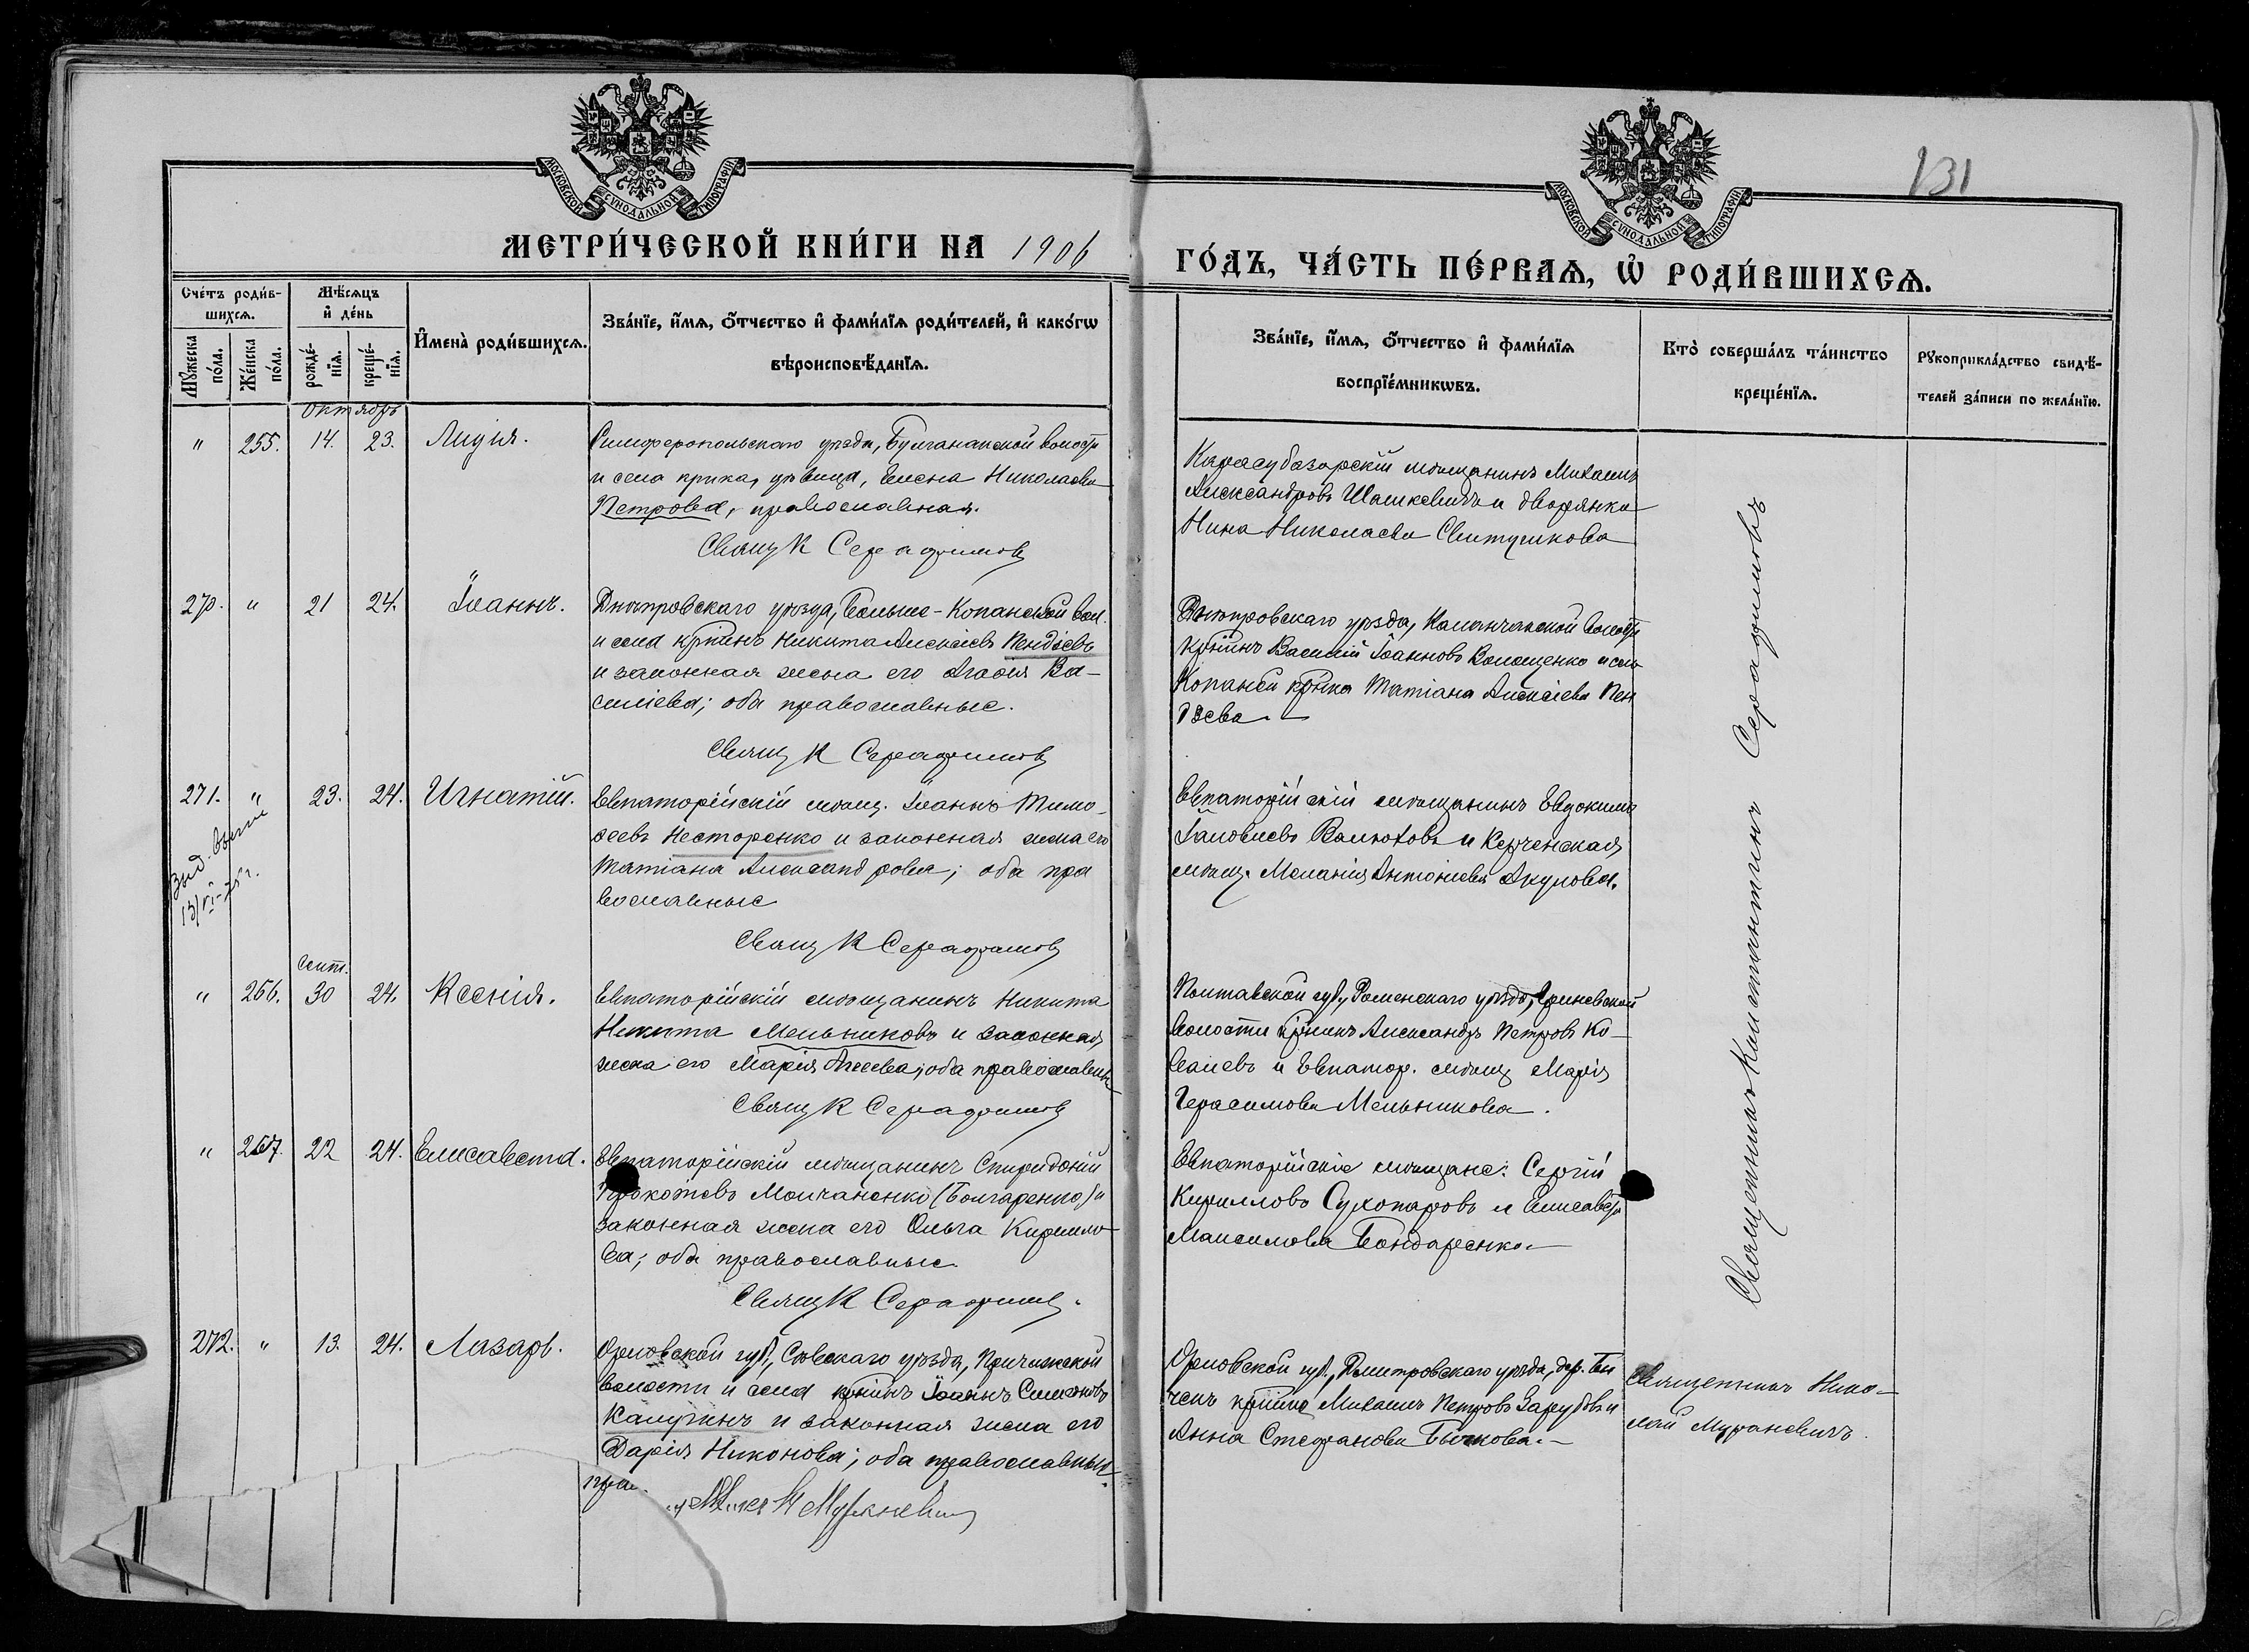 131
МОСКОВСКОЙ СѴНОДАЛЬНОЙ ТИПОГРАФІИ
МОСКОВСКОЙ СѴНОДАЛЬНОЙ ТИПОГРАФІИ
МЕТРИ́ЧЕСКОЙ КНИ́ГИ НА 1906
ГО́ДЪ, ЧА́СТЬ ПЕ́РВАѦ, Ѡ҆ РОДИ́ВШИХСѦ.
Сче́тъ роди́в-
шихсѧ.
Мꙋ́жеска
по́ла.
Же́нска
по́ла.
Мѣ́сѧцъ
и҆ де́нь
рожде́-
нїѧ.
креще́-
нїѧ.
И҆мена̀ роди́вшихсѧ.
Зва́нїе, и҆́мѧ, о҆́тчество и҆ фами́лїѧ роди́телей, и҆ како́гѡ
вѣроисповѣ́данїѧ.
Зва́нїе, и҆́мѧ, о҆́тчество и҆ фами́лїѧ
воспрїе́мникѡвъ.
Кто̀ соверша́лъ та́инство
креще́нїѧ.
Рꙋкоприкла́дство свидѣ́-
телей за́писи по жела́нїю.
Октябрь
" 255. 14. 23. Лидія.
Симферопольскаго уѣзда, Булганакской волости
и села кр-ка, дѣвица, Елена Николаева
Петрова, православная.
Свящ К Серафимов
Карасубазарскій мѣщанинъ Михаилъ
Александровъ Шашкевичъ и дворянка
Нина Николаева
270. " 21 24. Іоаннъ.
Днѣпровскаго уѣзда, Больше-Копанской вол.
и села кр-нинъ Никита Алексіевъ Пендзевъ
и законная жена его Агафія Ва-
силіева; оба православные.
Свящ К Серафимов
Днѣпровскаго уѣзда, Каланчакской волости
кр-нинъ Василій Іоанновъ Волощенко и села
Копаней кр-нка Татіана Алексіева Пен
дзева.
271. " 23. 24. Игнатій.
Выд. выпис
13/VI-75г.
Евпаторійскій мѣщ. Іоаннъ Тимо-
ѳеевъ Несторенко и законная жена его
Татіана Александрова; оба пра
вославные
Свящ К Серафимов
Евпаторійскій мѣщанинъ Евдокимъ
Валюховъ и Керченская
мѣщ. Меланія Антоніева Акулова.
Сент.
" 256. 30 24. Ксенія.
Евпаторійскій мѣщанинъ Никита
Никита Мельниковъ и законная
жена его Марія Агеева; оба православн
Свящ К Серафимов
Полтавской губ., Роменскаго уѣзда,
волости кр-нинъ Александръ Петровъ Ко-
валевъ и Евпатор. мѣщ Марія
Герасимова Мельникова.
" 257. 22 24. Елисавета.
Евпаторійскій мѣщанинъ Спиридоній
Прокопіевъ Молчаненко (Болгаренко) и
законная жена его Ольга Кирилло-
ва; оба православные
Свящ К Серафимов.
Евпаторійскіе мѣщане: Сергій
Кирилловъ Сухопаровъ и Елисавета
Максимова Бондаренко.
272. " 13. 24. Лазарь.
Орловской губ., Сѣвскаго уѣзда,
волости и села кр-нинъ Іоаннъ Симеоновъ
Калугинъ и законная жена его
Дарія Никонова; оба православные
Орловской губ., Дмитровскаго уѣзда, дер.
Михаилъ Петровъ Зарубовъ и
Анна Стефанова Бычкова.
Священникъ Нико-
лай Мураневичъ.
Священникъ Константинъ Серафимовъ